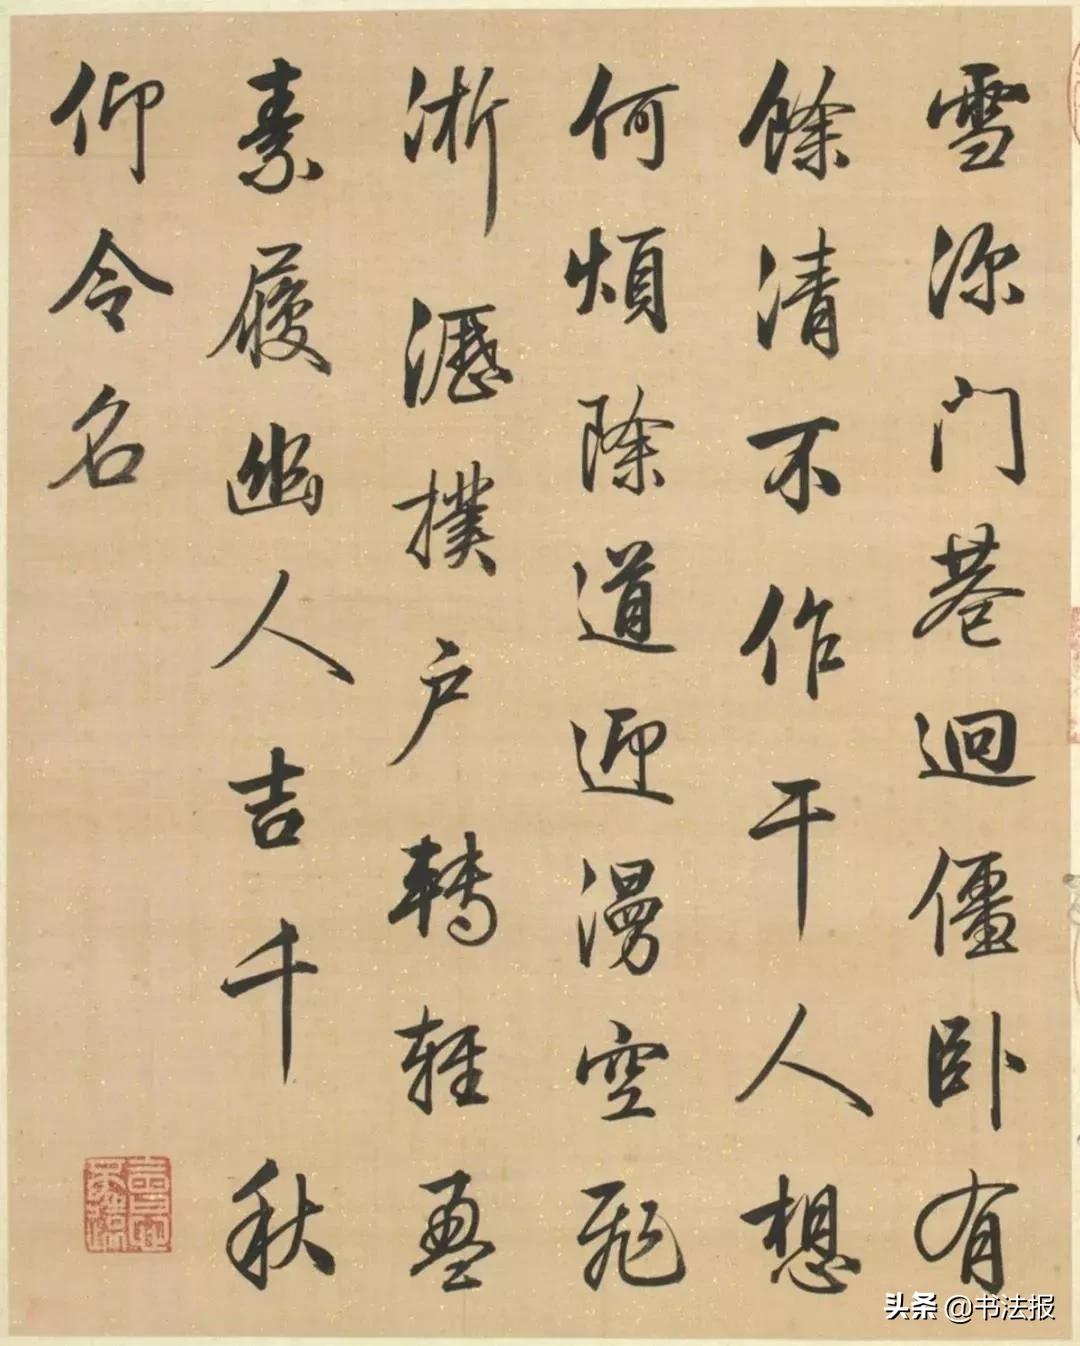 雪深门巷迥僵卧有
餘清不作干人想
何煩除道迎漫空飛
淅瀝撲户轉輕盈
素履幽人吉千秋
仰令名
头条 @书法报